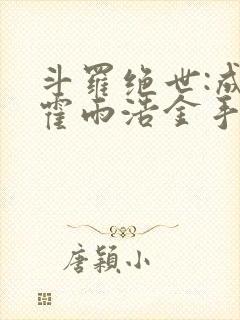 斗羅绝世:成
霍雨浩金手
唐穎小